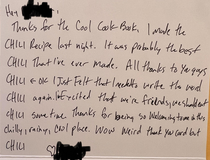 Hey
Thanks for the Cool Cook Book, I made the
CHILI Recipe last night. It was probably the best
CHILI That I've ever made. All thanks to you guys
CHILI ← OK I Just Felt that I needed to write the word
CHILI again. I'm Excited that we're friends, we should eat
CHILI some time. Thanks for being so Welcoming to me in this
chilly, rainy, owl place. Wow weird that you can but
CHILI